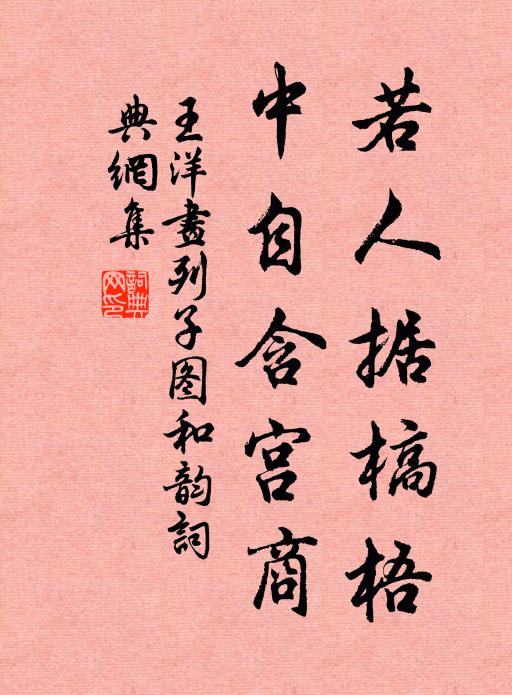 若人据槁梧
中自含宫商
王洋畫列子图和韵詞
典網集
詞典網印